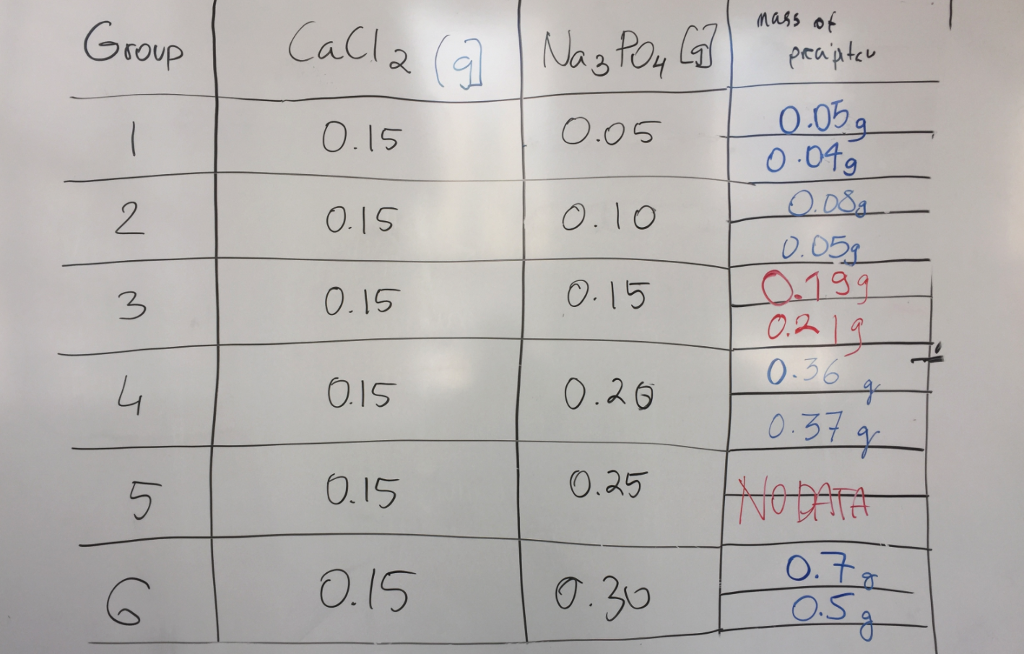 Group CaCl2 [g] Na3PO4 [g] mass of
1 0.15 0.05 0.05g
0.04g
2 0.15 0.10 0.08g
0.05g
3 0.15 0.15 0.19g
0.21g
4 0.15 0.20 0.36 g
0.37 g
5 0.15 0.25 NO DATA
6 0.15 0.30 0.7g
0.5g